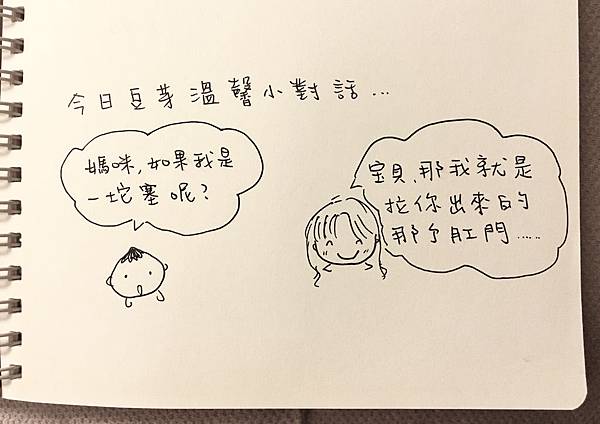 今日豆芽溫馨小對話...
媽咪,如果我是
一坨塞呢?
宝貝、那我就是
拉你出來的
那个肛門......